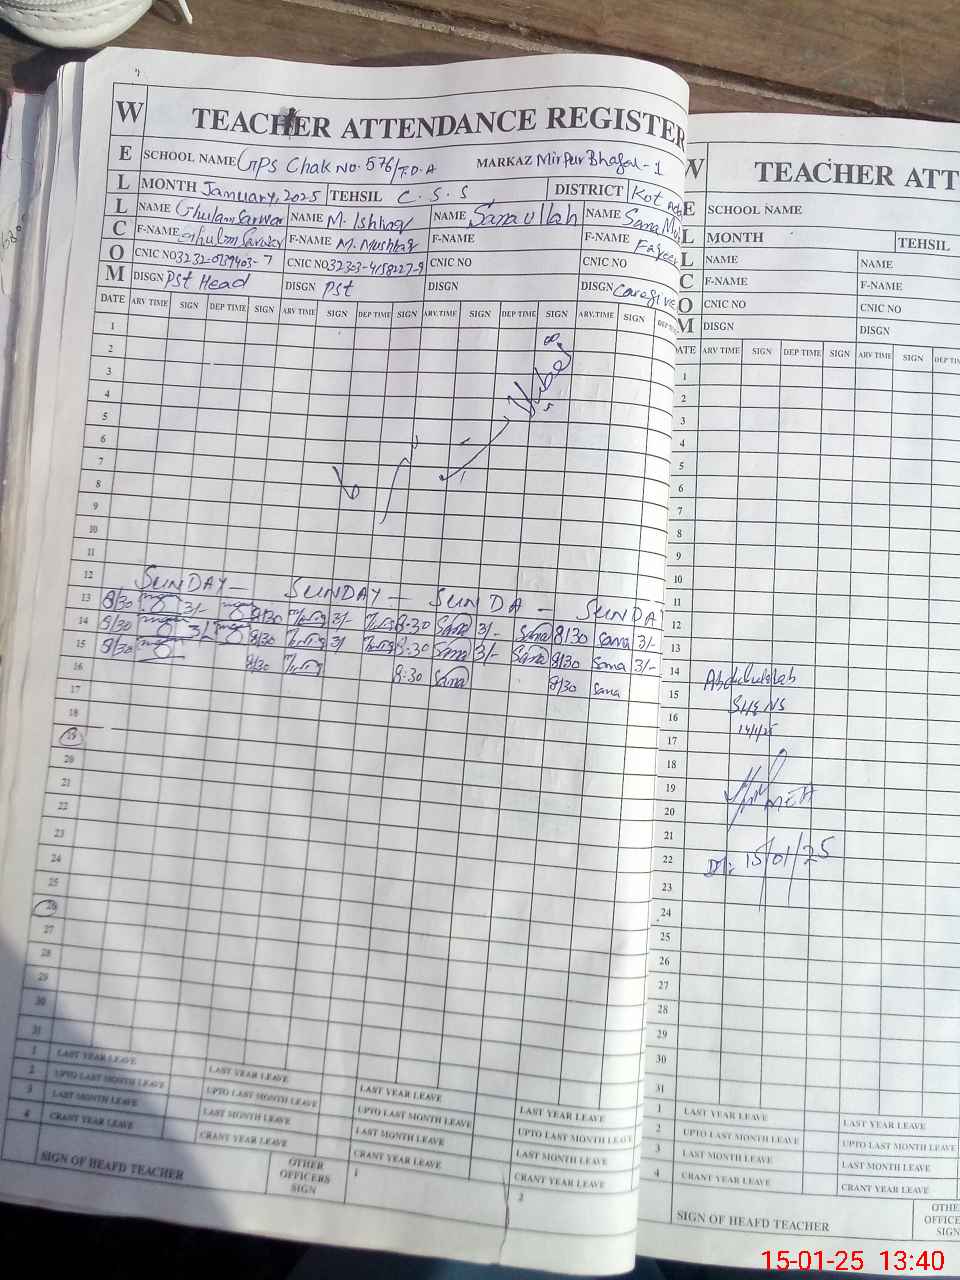 WELCOM
TEACHER ATTENDANCE REGISTER
SCHOOL NAME GPS Chak No. 576/T.D.A MARKAZ Mirpur Bhagal-1
MONTH January, 2025 TEHSIL C.S.S DISTRICT Kot
NAME Ghulam Sarwar NAME M. Ishhaq NAME Sana ullah NAME Sana
F-NAME Ghulam Sarwar F-NAME M. Mushtaq F-NAME F-NAME
CNIC NO CNIC NO CNIC NO CNIC NO
DISGN Pst Head DISGN Pst DISGN DISGN Caregive
DATE ARV TIME SIGN DEP TIME SIGN ARV TIME SIGN DEP TIME SIGN ARV.TIME SIGN DEP TIME SIGN ARV.TIME SIGN
1
2
3
4
5
6
7
8
9
10
11
12 SUNDAY — SUNDAY — SUNDA — SUNDA
13 8/30 3/- 8/30 3/- 8:30 Sana 3/- Sana 8/30 Sana 3/-
14 8/30 3/- 8/30 3/ 8:30 Sana 3/- Sana 8/30 Sana 3/-
15 8/30 8/30 8:30 Sana 8/30 Sana
16
17
18
19
20
21
22
23
24
25
26
27
28
29
30
31
1 LAST YEAR LEAVE LAST YEAR LEAVE LAST YEAR LEAVE LAST YEAR LEAVE
2 UPTO LAST MONTH LEAVE UPTO LAST MONTH LEAVE UPTO LAST MONTH LEAVE UPTO LAST MONTH LEAVE
3 LAST MONTH LEAVE LAST MONTH LEAVE LAST MONTH LEAVE LAST MONTH LEAVE
4 CRANT YEAR LEAVE CRANT YEAR LEAVE CRANT YEAR LEAVE CRANT YEAR LEAVE
SIGN OF HEAFD TEACHER OTHER OFFICERS SIGN 1 2
WELCOM
TEACHER ATT
SCHOOL NAME
MONTH TEHSIL
NAME NAME
F-NAME F-NAME
CNIC NO CNIC NO
DISGN DISGN
ATE ARV TIME SIGN DEP TIME SIGN ARV TIME SIGN DEP TIM
1
2
3
4
5
6
7
8
9
10
11
12
13
14 Abdul
15
16 14/1/25
17
18
19
20
21
22 Dt: 15/01/25
23
24
25
26
27
28
29
30
31
1 LAST YEAR LEAVE LAST YEAR LEAVE
2 UPTO LAST MONTH LEAVE UPTO LAST MONTH LEAVE
3 LAST MONTH LEAVE LAST MONTH LEAVE
4 CRANT YEAR LEAVE CRANT YEAR LEAVE
SIGN OF HEAFD TEACHER OTHE OFFICE SIGN
15-01-25 13:40